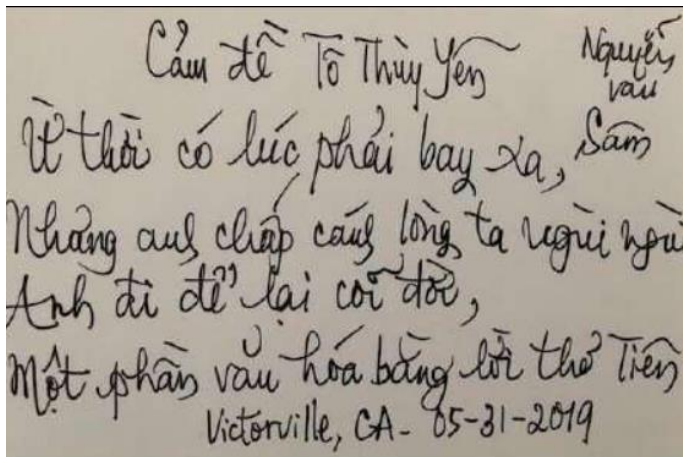 Cảm đề Tô Thùy Yên
Nguyễn
văn
Sâm
Ừ thời có lúc phải bay xa,
Nhưng anh chấp cánh lòng ta ngùi ngùi
Anh đi để lại cõi đời,
Một phần văn hóa bằng lời thơ Tiên
Victorville, CA - 05-31-2019